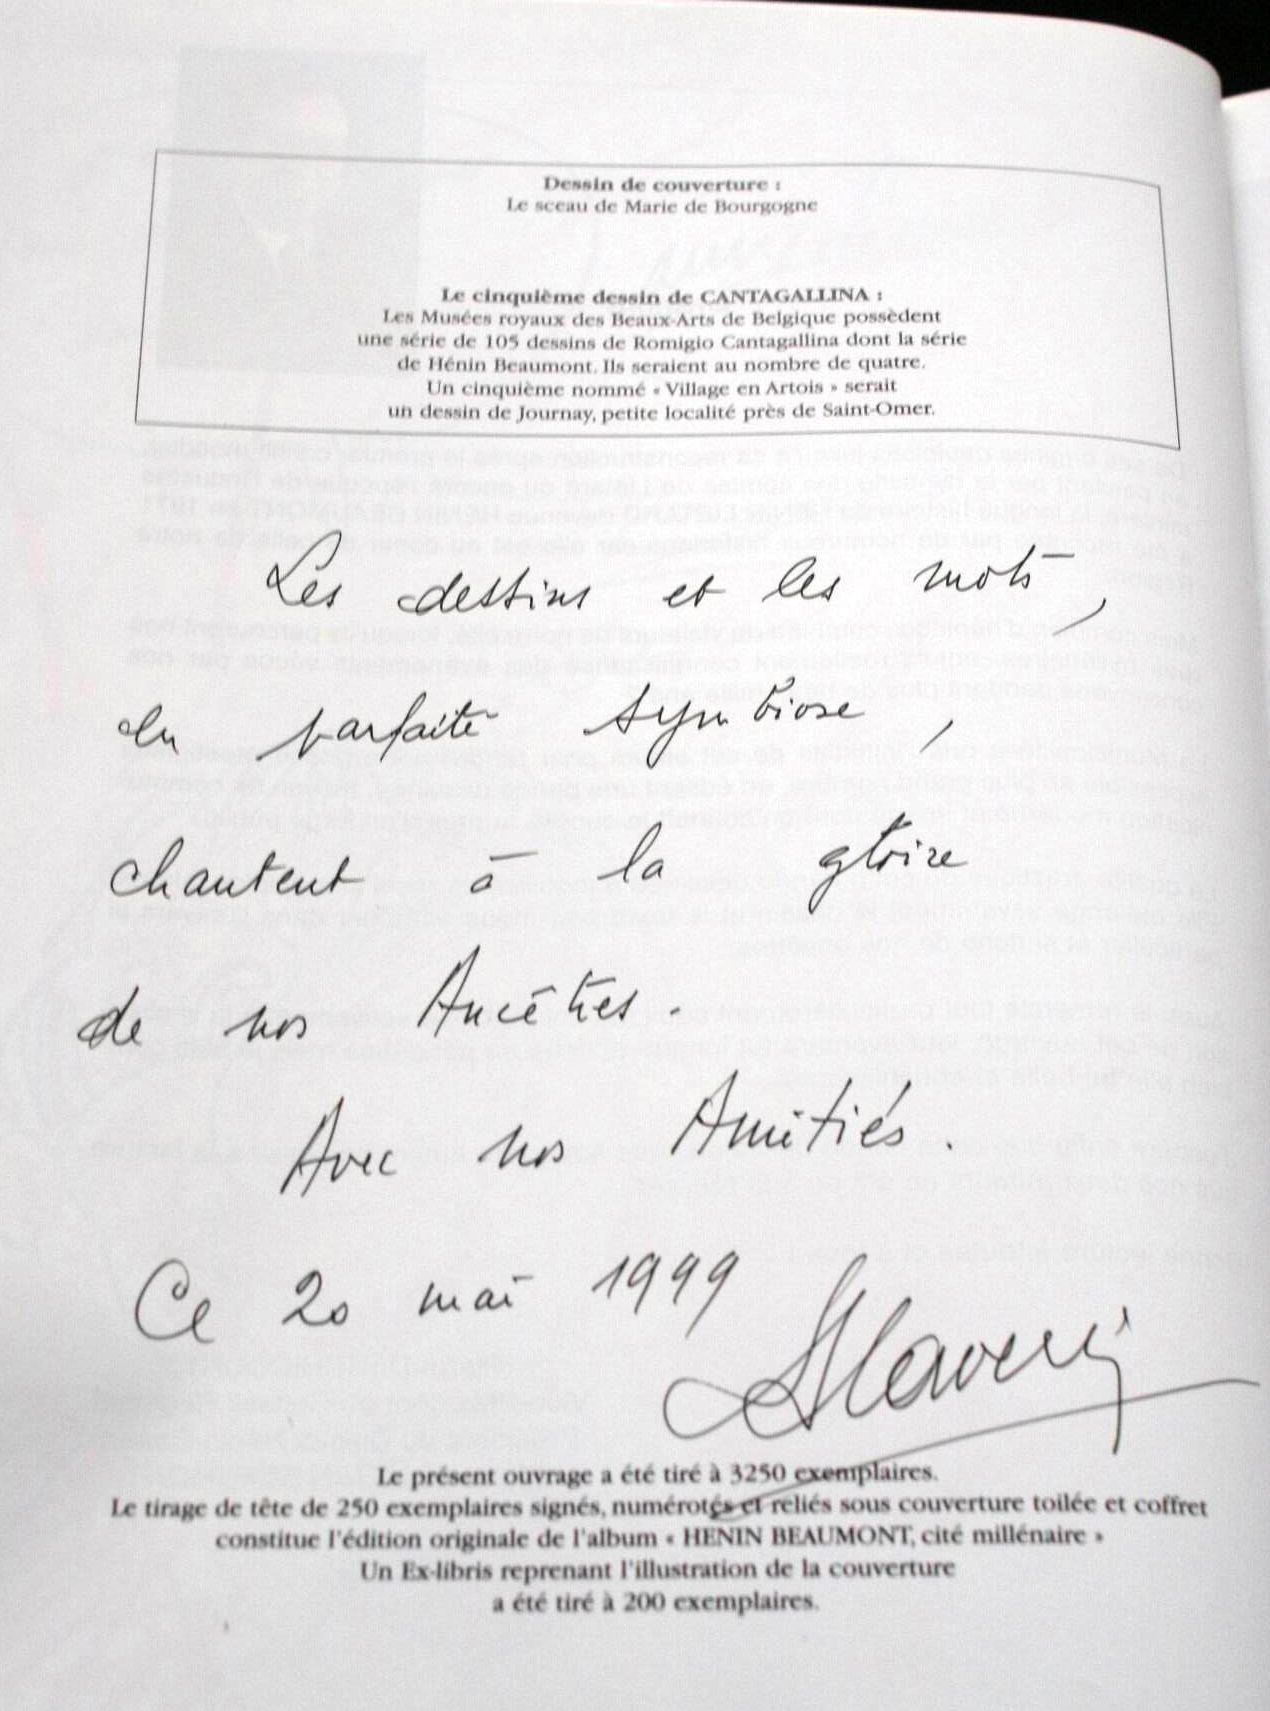 Dessin de couverture :
Le sceau de Marie de Bourgogne
Le cinquième dessin de CANTAGALLINA :
Les Musées royaux des Beaux-Arts de Belgique possèdent
une série de 105 dessins de Romigio Cantagallina dont la série
de Hénin Beaumont. Ils seraient au nombre de quatre.
Un cinquième nommé « Village en Artois » serait
un dessin de Journay, petite localité près de Saint-Omer.
Les dessins et les mots,
en parfaite symbiose,
chantent à la gloire
de nos Ancêtres.
Avec nos Amitiés.
Ce 20 mai 1999
Le présent ouvrage a été tiré à 3250 exemplaires.
Le tirage de tête de 250 exemplaires signés, numérotés et reliés sous couverture toilée et coffret
constitue l'édition originale de l'album « HENIN BEAUMONT, cité millénaire »
Un Ex-libris reprenant l'illustration de la couverture
a été tiré à 200 exemplaires.